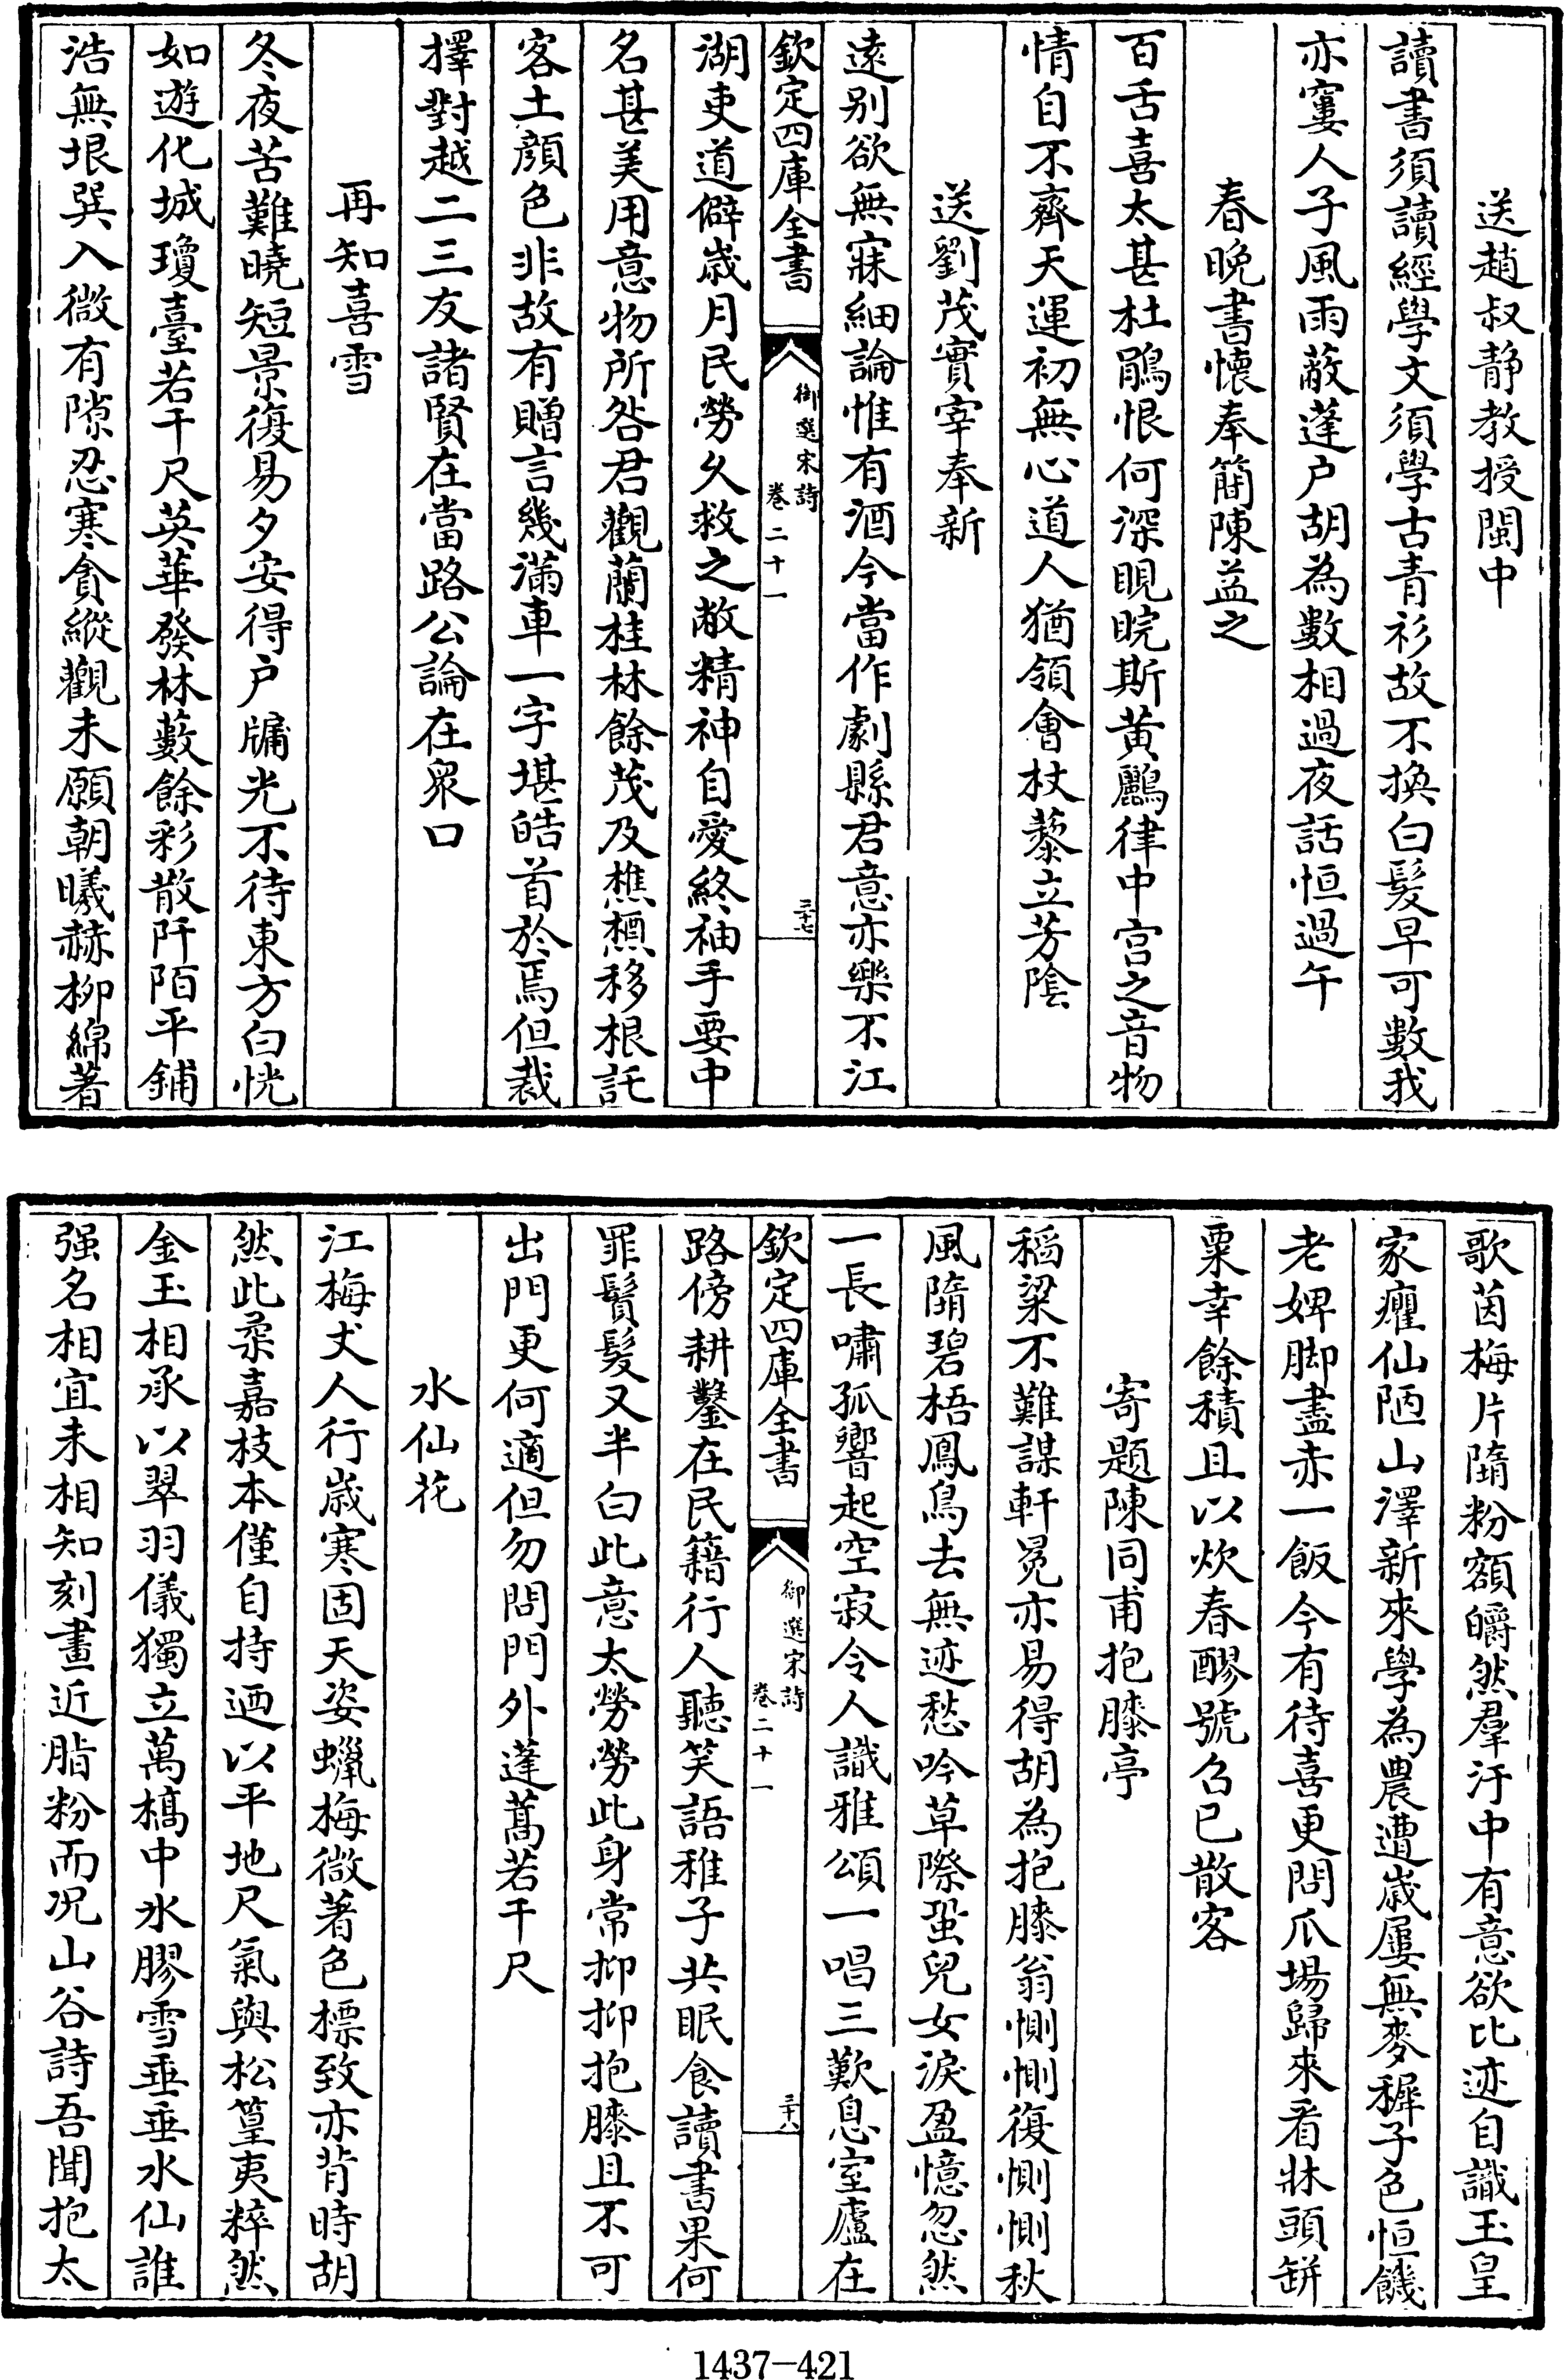 送趙叔静教授閩中
讀書須讀經學文須學古青衫故不換白髪早可數我
亦窶人子風雨蔽蓬户胡為數相過夜話恒過午
春晚書懷奉簡陳益之
百舌喜太甚杜鵑恨何深睍睆斯黄鸝律中宫之音物
情自不齊天運初無心道人猶領會杖藜立芳陰
送劉茂實宰奉新
遠别欲無寐細論惟有酒今當作劇縣君意亦樂不江
欽定四庫全書
御選宋詩
卷二十一
三十七
湖吏道僻歳月民勞久救之敝精神自愛終袖手要中
名甚美用意物所咎君觀蘭桂林餘茂及樵槱移根託
客土顔色非故有贈言幾滿車一字堪皓首於焉但裁
擇對越二三友諸賢在當路公論在衆口
再知喜雪
冬夜苦難曉短景復易夕安得户牖光不待東方白恍
如遊化城瓊臺若干尺英華發林藪餘彩散阡陌平鋪
浩無垠巽入微有隙忍寒貪縱觀未願朝曦赫柳綿著
歌茵梅片隋粉額皭然羣汙中有意欲比迹自識玉皇
家癯仙陋山澤新來學為農遭歳屢無麥穉子色恒饑
老婢脚盡赤一飯今有待喜更問爪場歸來看牀頭缾
粟幸餘積且以炊春醪號召已散客
寄題陳同甫抱膝亭
稻粱不難謀軒冕亦易得胡為抱膝翁惻惻復惻惻秋
風隋碧梧鳳鳥去無迹愁吟草際蛩兒女淚盈憶忽然
一長嘯孤響起空寂令人識雅頌一唱三歎息室廬在
欽定四庫全書
御選宋詩
卷二十一
三十八
路傍耕鑿在民籍行人聽笑語稚子共眠食讀書果何
罪鬢髮又半白此意太勞勞此身常抑抑抱膝且不可
出門更何適但勿問門外蓬蒿若干尺
水仙花
江梅丈人行歳寒固天姿蠟梅微著色標致亦背時胡
然此柔嘉枝本僅自持迺以平地尺氣與松篁夷粹然
金玉相承以翠羽儀獨立萬槁中氷膠雪垂垂水仙誰
强名相宜未相知刻畫近脂粉而况山谷詩吾聞抱太
1437-421